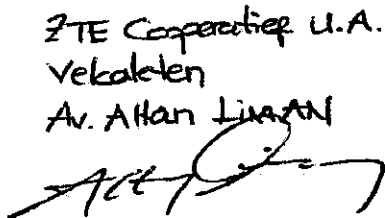 ZTE Cooperatief U.A.
Vekaleten
Av. Altan LİMAN